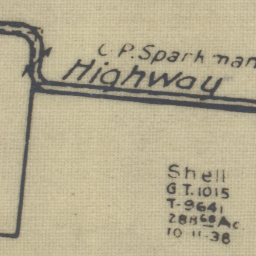 C.P. Sparkman
Highway
Shell
G.T. 1015
T-9641
288 68 Ac.
10-11-38